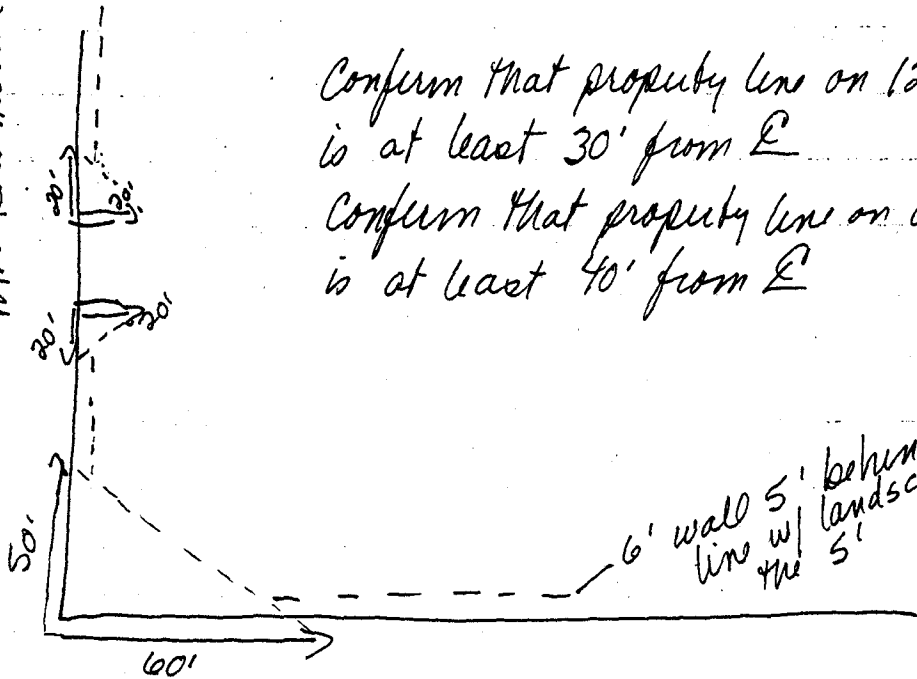 Confirm that property line on 12
is at least 30' from ℄
Confirm that property line on
is at least 40' from ℄
20'
20'
20'
20'
50'
60'
6' wall 5' behin
line w/ landsc
the 5'